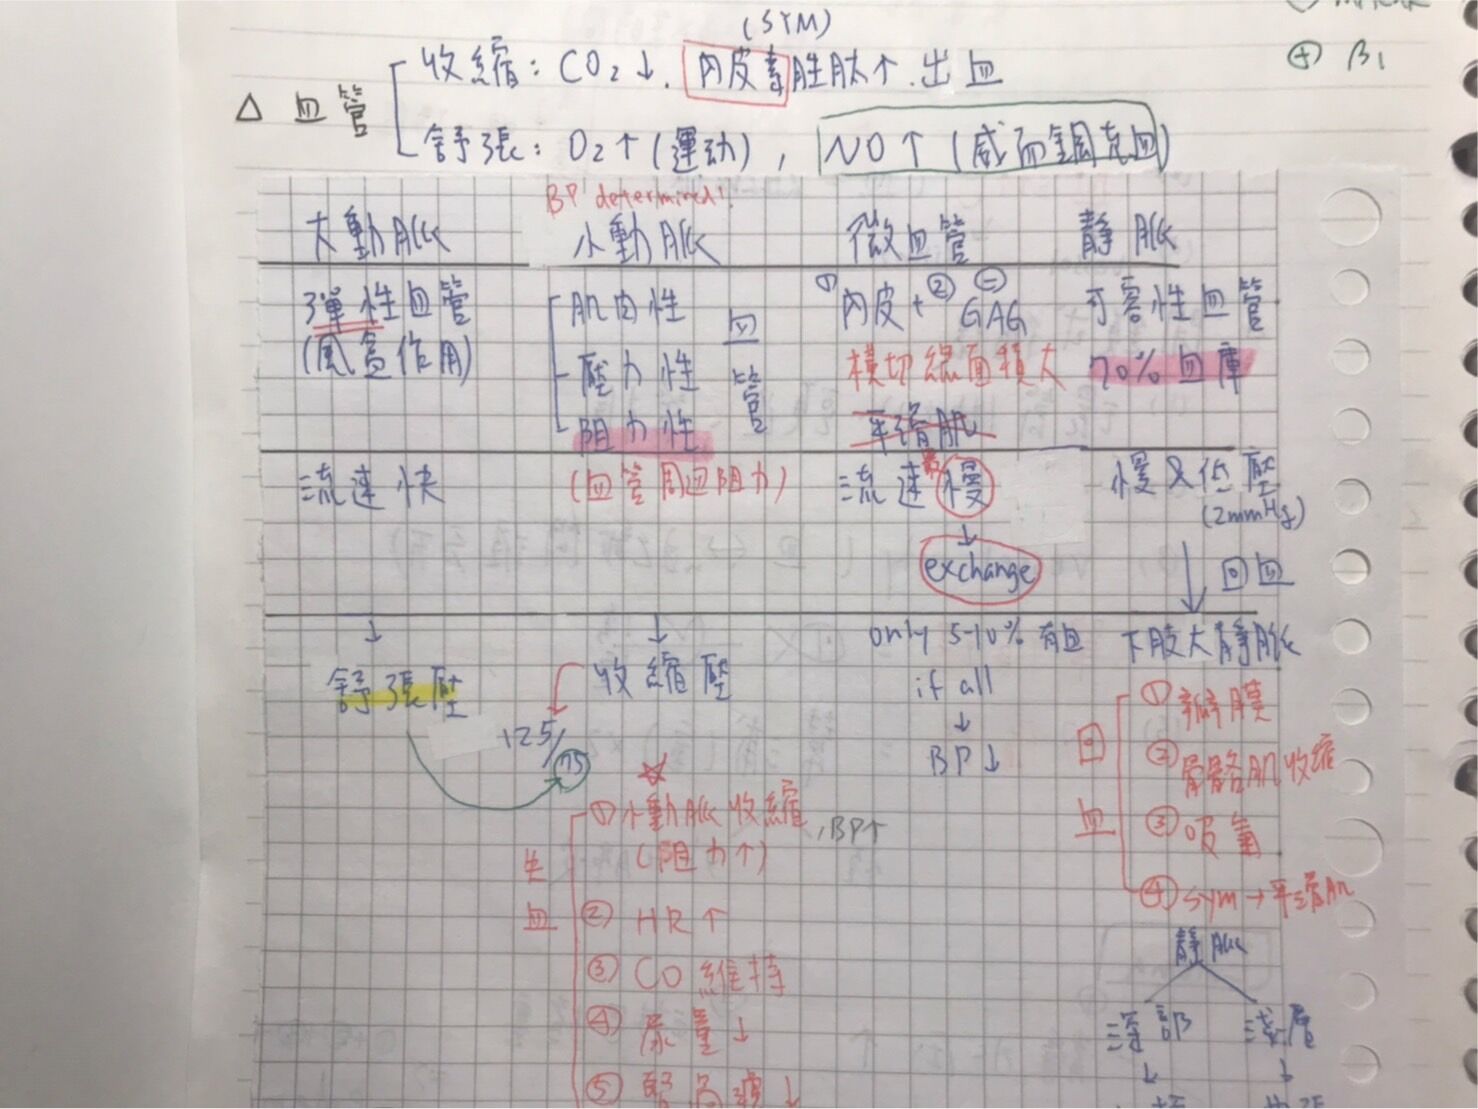 (SYM)
收縮：CO₂↓．內皮素胜肽↑．出血
⊕ β₁
△ 血管
舒張：O₂↑(運动)，NO↑(威而鋼充血)
BP determined!
大動脈 小動脈 微血管 靜脈
彈性血管 肌肉性 血管 ①內皮+②㊁GAG 可容性血管
(風箱作用) 壓力性 橫切總面積大 70%血庫
阻力性 平滑肌
流速快 (血管周迴阻力) 流速最慢 慢&低壓
(2mmHg)
↓
exchange 回血
↓ ↓ only 5-10% 有血 下肢大靜脈
舒張壓 收縮壓 if all
125/75 ↓
BP↓
回血
①瓣膜
②骨骼肌收縮
③吸氣
④sym→平滑肌
☆
失血
①小動脈收縮，BP↑
(阻力↑)
②HR↑
③CO維持
④尿量↓
⑤腎
靜脈
深部 淺層
↓ ↓